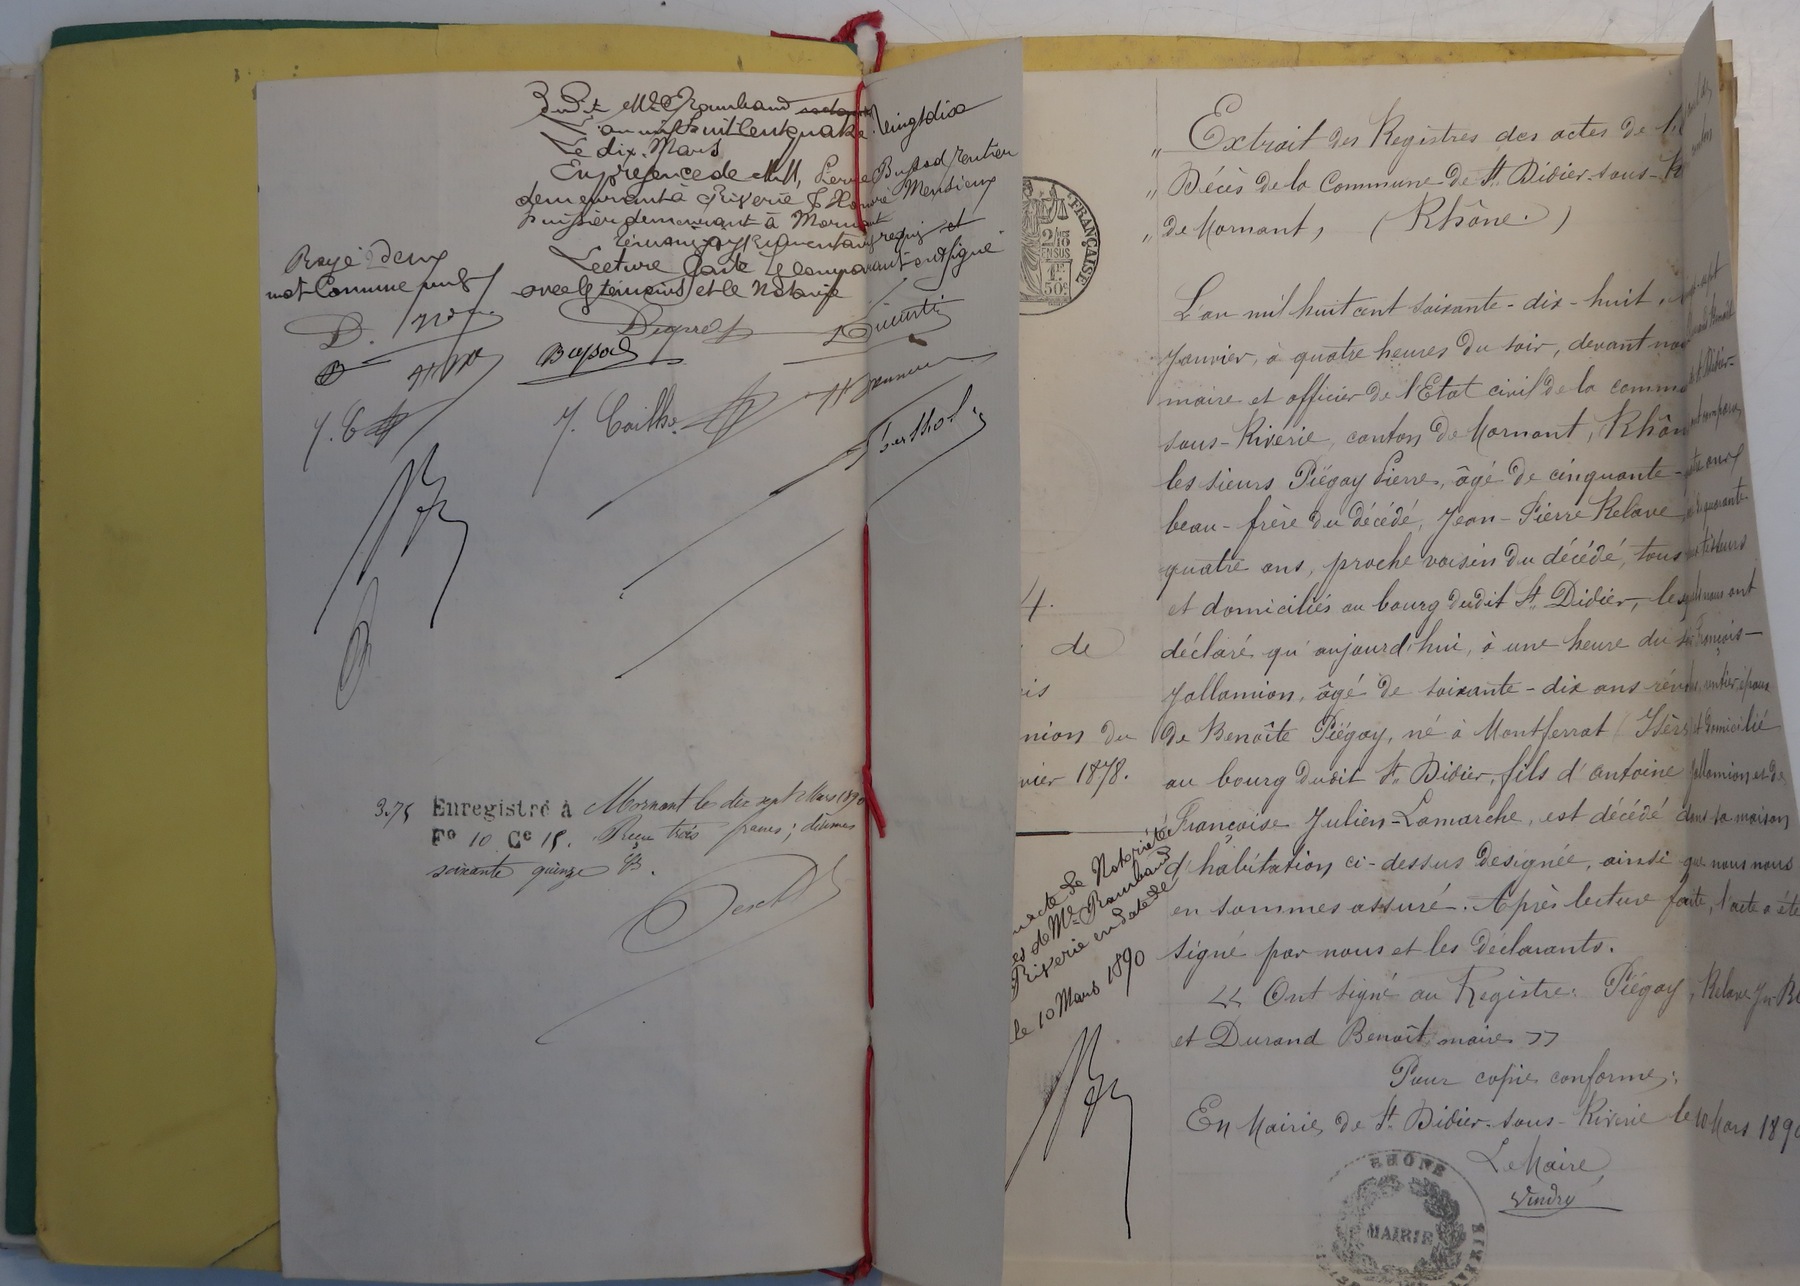 dudit Me Rambaud
L'an mil huit cent quatre Vingt dix
Le dix Mars
En présence de MM. Pierre Bussod rentier
demeurant à Riverie & Honoré
huissier demeurant à Mornant
témoins instrumentaires requis et
Lecture faite les comparants ont signé
avec les témoins et le Notaire
Rayé deux
mot Comme nuls
Bussod
J. Cailhe
Bertholy
3.75 Enregistré à Mornant le dix sept Mars 1890
Fo 10 Ce 15. Reçu trois francs; décimes
soixante quinze
FRANÇAISE
2/10
EN SUS
1F
50c
4.
de
nion du
vier 1878.
acte de Notoriété
es de Me Rambaud
Riverie en date du
le 10 Mars 1890
„ Extrait des Registres des actes de
„ Décès de la Commune de St Didier-sous-
„ de Mornant, (Rhône.)
L'an mil huit cent soixante-dix-huit, vingt-sept
Janvier, à quatre heures du soir, devant nous Durand Benoît
maire et officier de l'Etat civil de la commune de St Didier-
sous-Riverie, canton de Mornant, Rhône, ont comparu
les sieurs Piégay Pierre, âgé de cinquante-quatre ans,
beau-frère du décédé, Jean-Pierre Relave, âgé de quarante
quatre ans, proche voisin du décédé, tous deux tisseurs
et domiciliés au bourg dudit St Didier, lesquels nous ont
déclaré qu'aujourd'hui, à une heure du soir François-
Jallamion, âgé de soixante-dix ans révolus, rentier, époux
de Benoîte Piégay, né à Montferrat (Isère) et domicilié
au bourg dudit St Didier, fils d'antoine Jallamion et de
Françoise Julien-Lamarche, est décédé dans sa maison
d'habitation ci-dessus designée, ainsi que nous nous
en sommes assuré. Après lecture faite, l'acte a été
signé par nous et les déclarants.
« Ont signé au Registre: Piégay, Relave Jn
et Durand Benoît maire »
Pour copie conforme:
En Mairie de St Didier-sous-Riverie le 10 Mars 1890
Le Maire,
Vindry
RHÔNE
MAIRIE